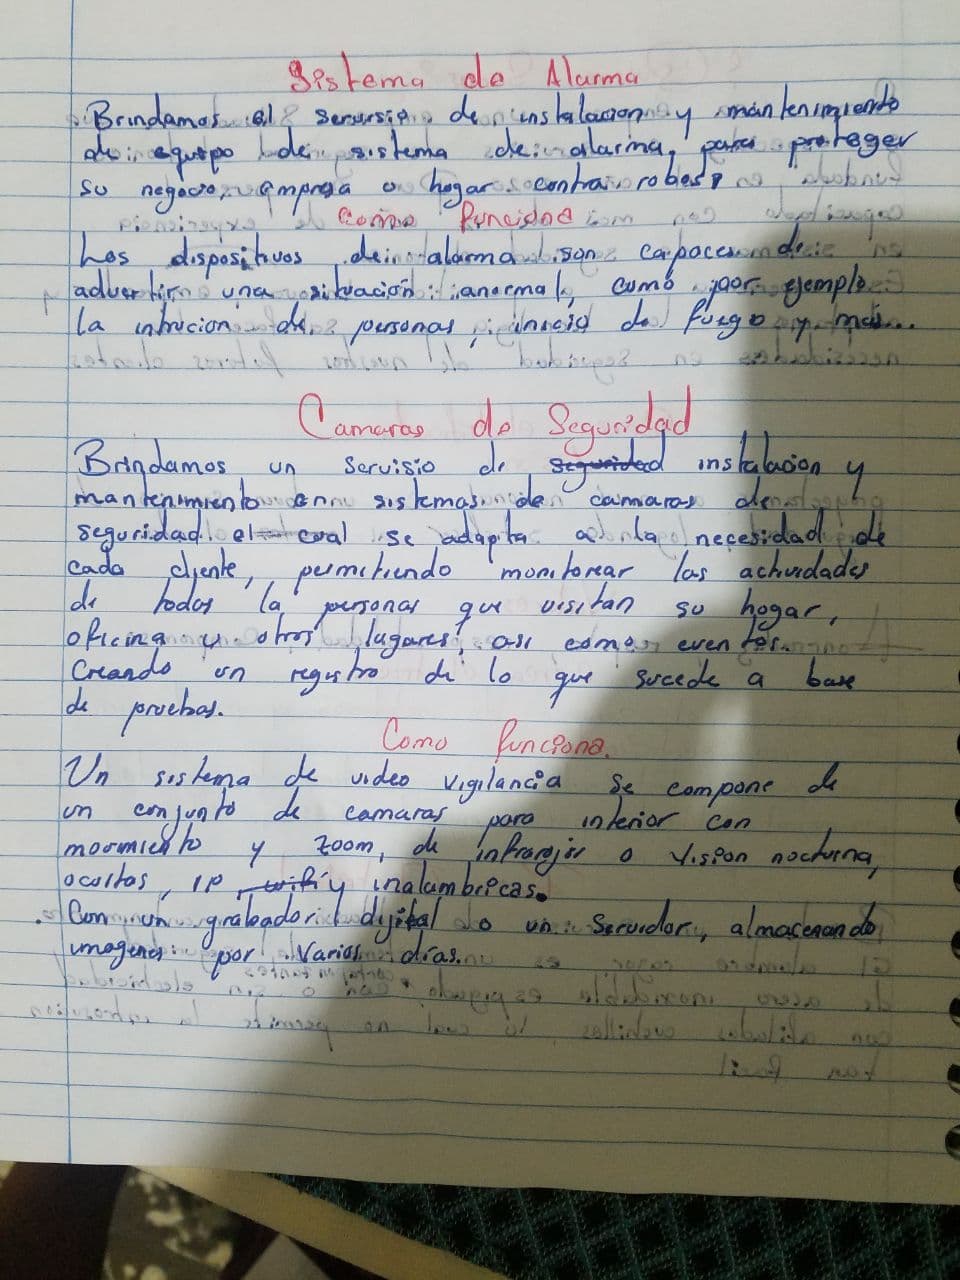 Sistema de Alarma
Brindamos el serursio de instalacion y mantenimiendo
de equipo de sistema de alarma, para proteger
su negocio, empresa o hogar contra robos,
Como funciona
Los dispositivos de alarma son capaces de
advertir una situación anormal, como por ejemplo
la intrucion de personas, inicio de fuego y mas...
Camaras de Seguridad
Brindamos un servisio de seguridad instalacion y
mantenimiento en sistemas de camaras de
seguridad el cual se adapta a la necesidad de
cada cliente, permitiendo monitorear las actividades
de todas la personas que visitan su hogar,
oficina y otros lugares, asi como eventos.
Creando un registro de lo que sucede a base
de pruebas.
Como funciona.
Un sistema de video vigilancia se compone de
un conjunto de camaras para interior con
movimiento y zoom, de infrarojos o vision nocturna,
ocultas, IP wifi y inalambricas.
Con un grabador digital o un servidor, almacenando
imagenes por varios días.